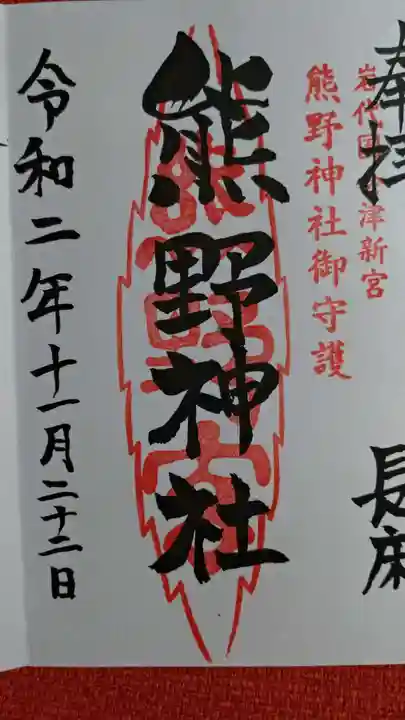 奉拝
岩代国会津新宮
熊野神社御守護
長床
熊野神社
令和二年十一月二十二日